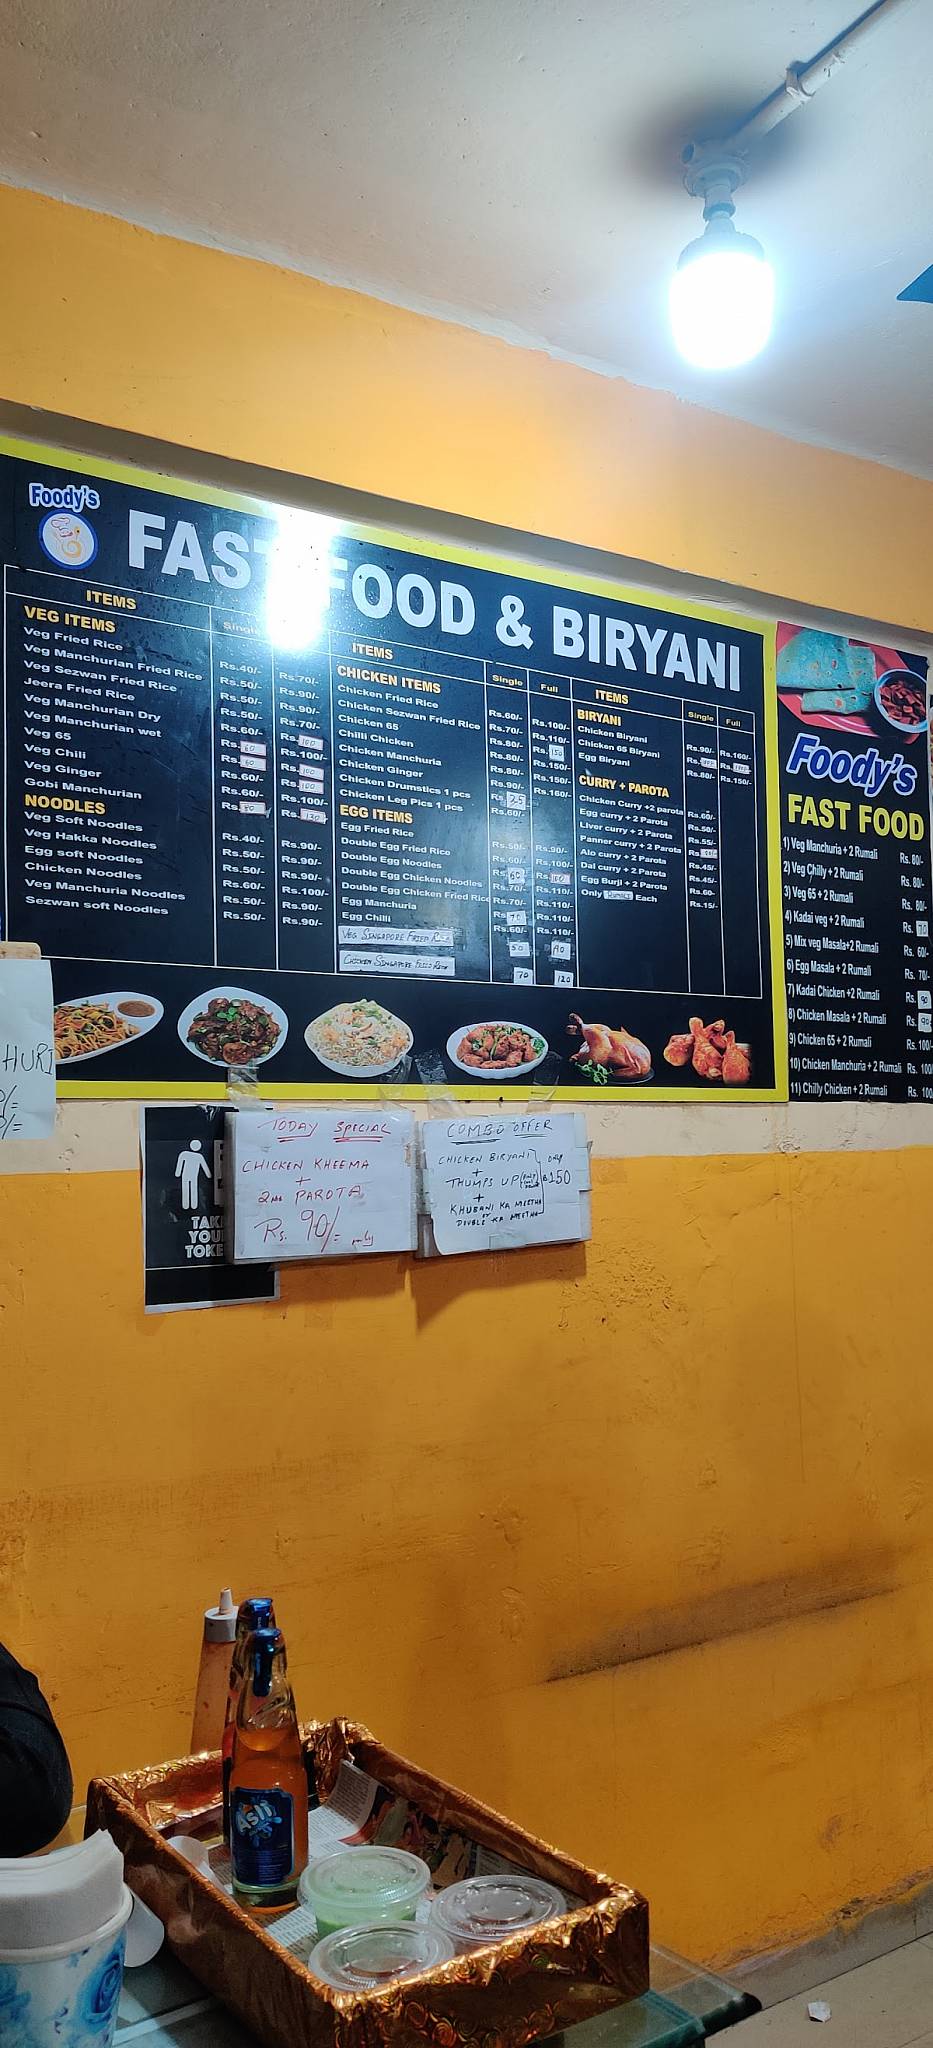 Foody's
FAST FOOD & BIRYANI
ITEMS
Single
VEG ITEMS
Veg Fried Rice Rs.40/- Rs.70/-
Veg Manchurian Fried Rice Rs.50/- Rs.90/-
Veg Sezwan Fried Rice Rs.50/- Rs.90/-
Jeera Fried Rice Rs.50/- Rs.70/-
Veg Manchurian Dry Rs.60/- Rs.100/-
Veg Manchurian wet
Veg 65
Veg Chili
Veg Ginger
Gobi Manchurian
NOODLES
Veg Soft Noodles Rs.40/- Rs.90/-
Veg Hakka Noodles Rs.50/- Rs.90/-
Egg soft Noodles Rs.60/- Rs.100/-
Chicken Noodles
Veg Manchuria Noodles Rs.50/- Rs.90/-
Sezwan soft Noodles
ITEMS Single Full
CHICKEN ITEMS
Chicken Fried Rice Rs.60/- Rs.100/-
Chicken Sezwan Fried Rice Rs.70/- Rs.110/-
Chicken 65 Rs.80/- Rs. 150
Chilli Chicken Rs.80/- Rs.150/-
Chicken Manchuria Rs.80/- Rs.150/-
Chicken Ginger Rs.90/- Rs.160/-
Chicken Drumstics 1 pcs Rs. 35
Chicken Leg Pics 1 pcs Rs.60/-
EGG ITEMS
Egg Fried Rice Rs.50/- Rs.90/-
Double Egg Fried Rice Rs.60/- Rs.100/-
Double Egg Noodles Rs. 60 Rs. 100
Double Egg Chicken Noodles Rs.70/- Rs.110/-
Double Egg Chicken Fried Rice Rs.70/- Rs.110/-
Egg Manchuria Rs. 70 Rs.110/-
Egg Chilli Rs.60/- Rs.110/-
VEG SINGAPORE FRIED RICE 50 90
CHICKEN SINGAPORE FRIED RICE 70 120
ITEMS Single Full
BIRYANI
Chicken Biryani Rs.90/- Rs.160/-
Chicken 65 Biryani
Egg Biryani Rs.80/- Rs.150/-
CURRY + PAROTA
Chicken Curry +2 parota Rs.60/-
Egg curry + 2 Parota Rs.50/-
Liver curry + 2 Parota Rs.55/-
Panner curry + 2 Parota
Alo curry + 2 Parota Rs.45/-
Dal curry + 2 Parota Rs.45/-
Egg Burji + 2 Parota Rs.60-
Only Each Rs.15/-
Foody's
FAST FOOD
1) Veg Manchuria + 2 Rumali Rs. 80/-
2) Veg Chilly + 2 Rumali Rs. 80/-
3) Veg 65 + 2 Rumali Rs. 80/-
4) Kadai veg + 2 Rumali Rs. 70
5) Mix veg Masala+2 Rumali Rs. 60/-
6) Egg Masala + 2 Rumali Rs. 70/-
7) Kadai Chicken +2 Rumali Rs. 90
8) Chicken Masala + 2 Rumali Rs. 90
9) Chicken 65 + 2 Rumali Rs. 100/-
10) Chicken Manchuria + 2 Rumali Rs. 100
11) Chilly Chicken + 2 Rumali Rs. 100
HURI
/=
/=
TAKE
YOU
TOKE
TODAY SPECIAL
CHICKEN KHEEMA
+
2 PAROTA
Rs. 90/= only
COMBO OFFER
CHICKEN BIRYANI
+
THUMPS UP
+
KHUBANI KA MEETHA
OR
DOUBLE KA MEETHA
ONLY
150
Asli